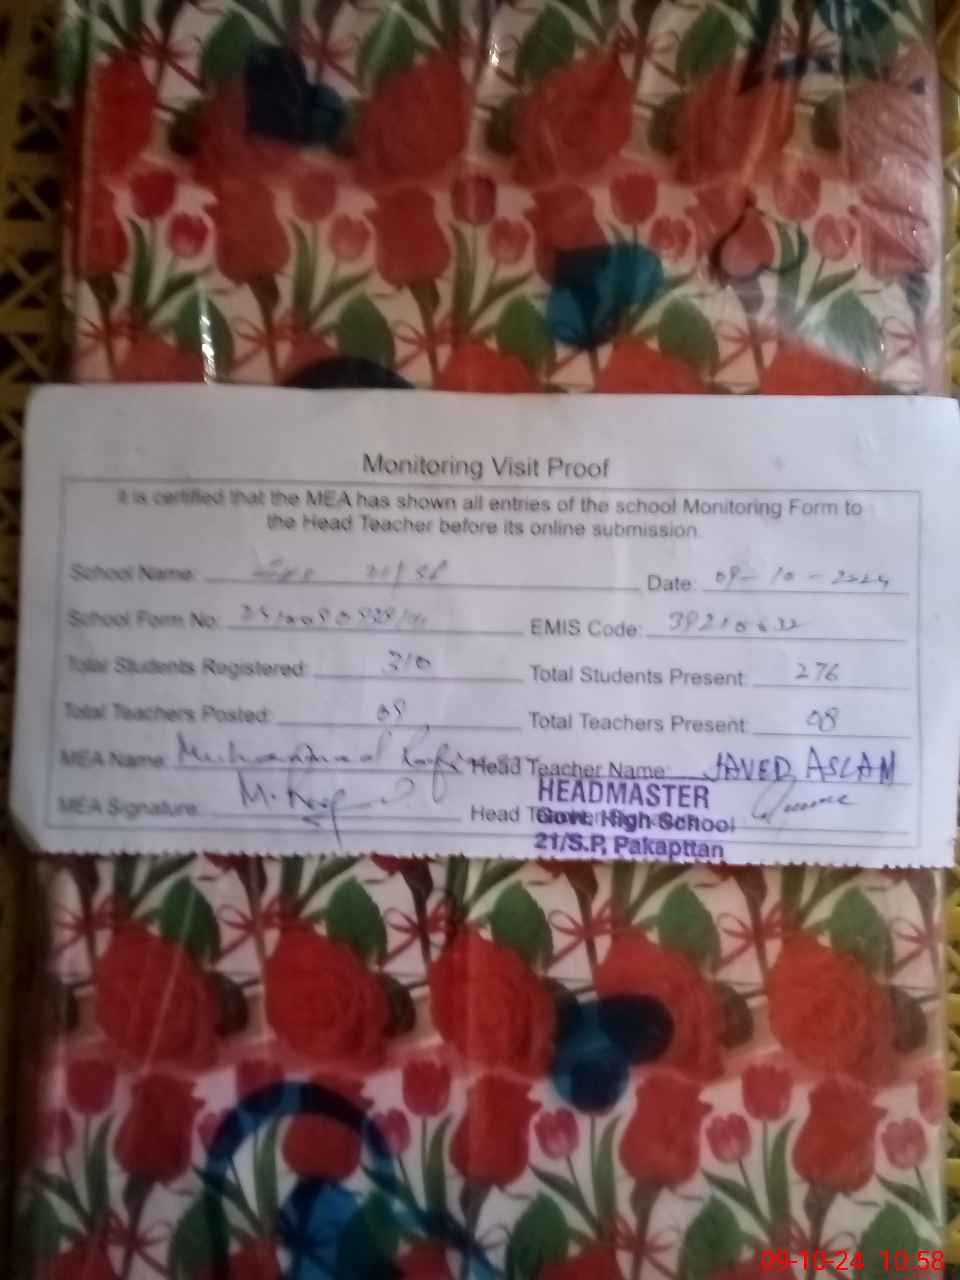 Monitoring Visit Proof
It is certified that the MEA has shown all entries of the school Monitoring Form to
the Head Teacher before its online submission.
School Name: 21/SP Date: 09-10-2024
School Form No: EMIS Code:
Total Students Registered: 310 Total Students Present: 276
Total Teachers Posted: 09 Total Teachers Present: 08
MEA Name: Muhammad Rafi Head Teacher Name: JAVED ASLAM
MEA Signature: M. Rafi Head
HEADMASTER
Govt. High School
21/S.P, Pakapttan
09-10-24 10:58